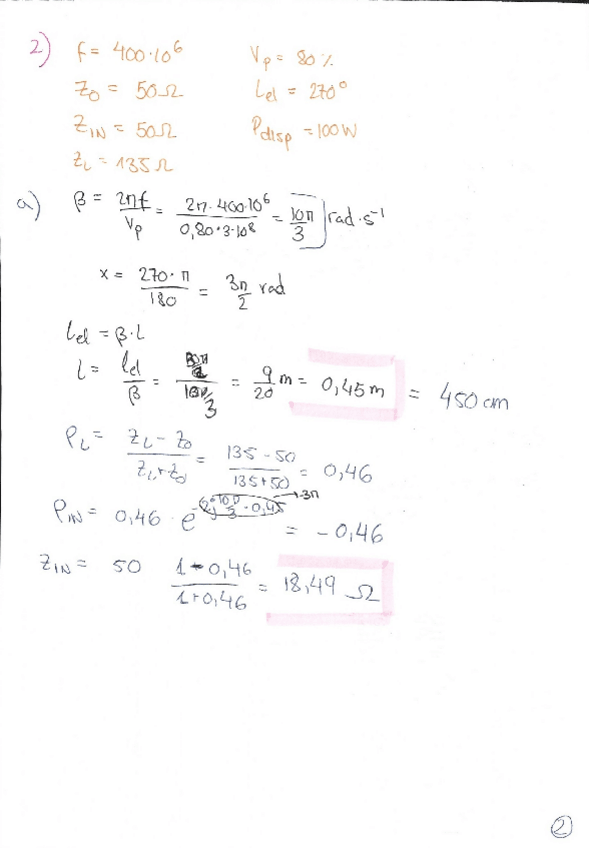 2) f = 400·10⁶ Vp = 80 %
Z0 = 50Ω Lel = 270°
ZIN = 50Ω Pdisp = 100W
ZL = 135Ω
a) β = 2πf/Vp = 2π·400·10⁶/0,80·3·10⁸ = 10π/3 rad·s⁻¹
x = 270·π/180 = 3π/2 rad
Lel = β·L
L = lel/β = /3 = 9/20 m = 0,45m = 450 cm
ρL = ZL - Z0/ZL + Z0 = 135 - 50/135 + 50 = 0,46
ρIN = 0,46 · e = - 0,46 → -3π
ZIN = 50 1 - 0,46/1 + 0,46 = 18,49 Ω
2